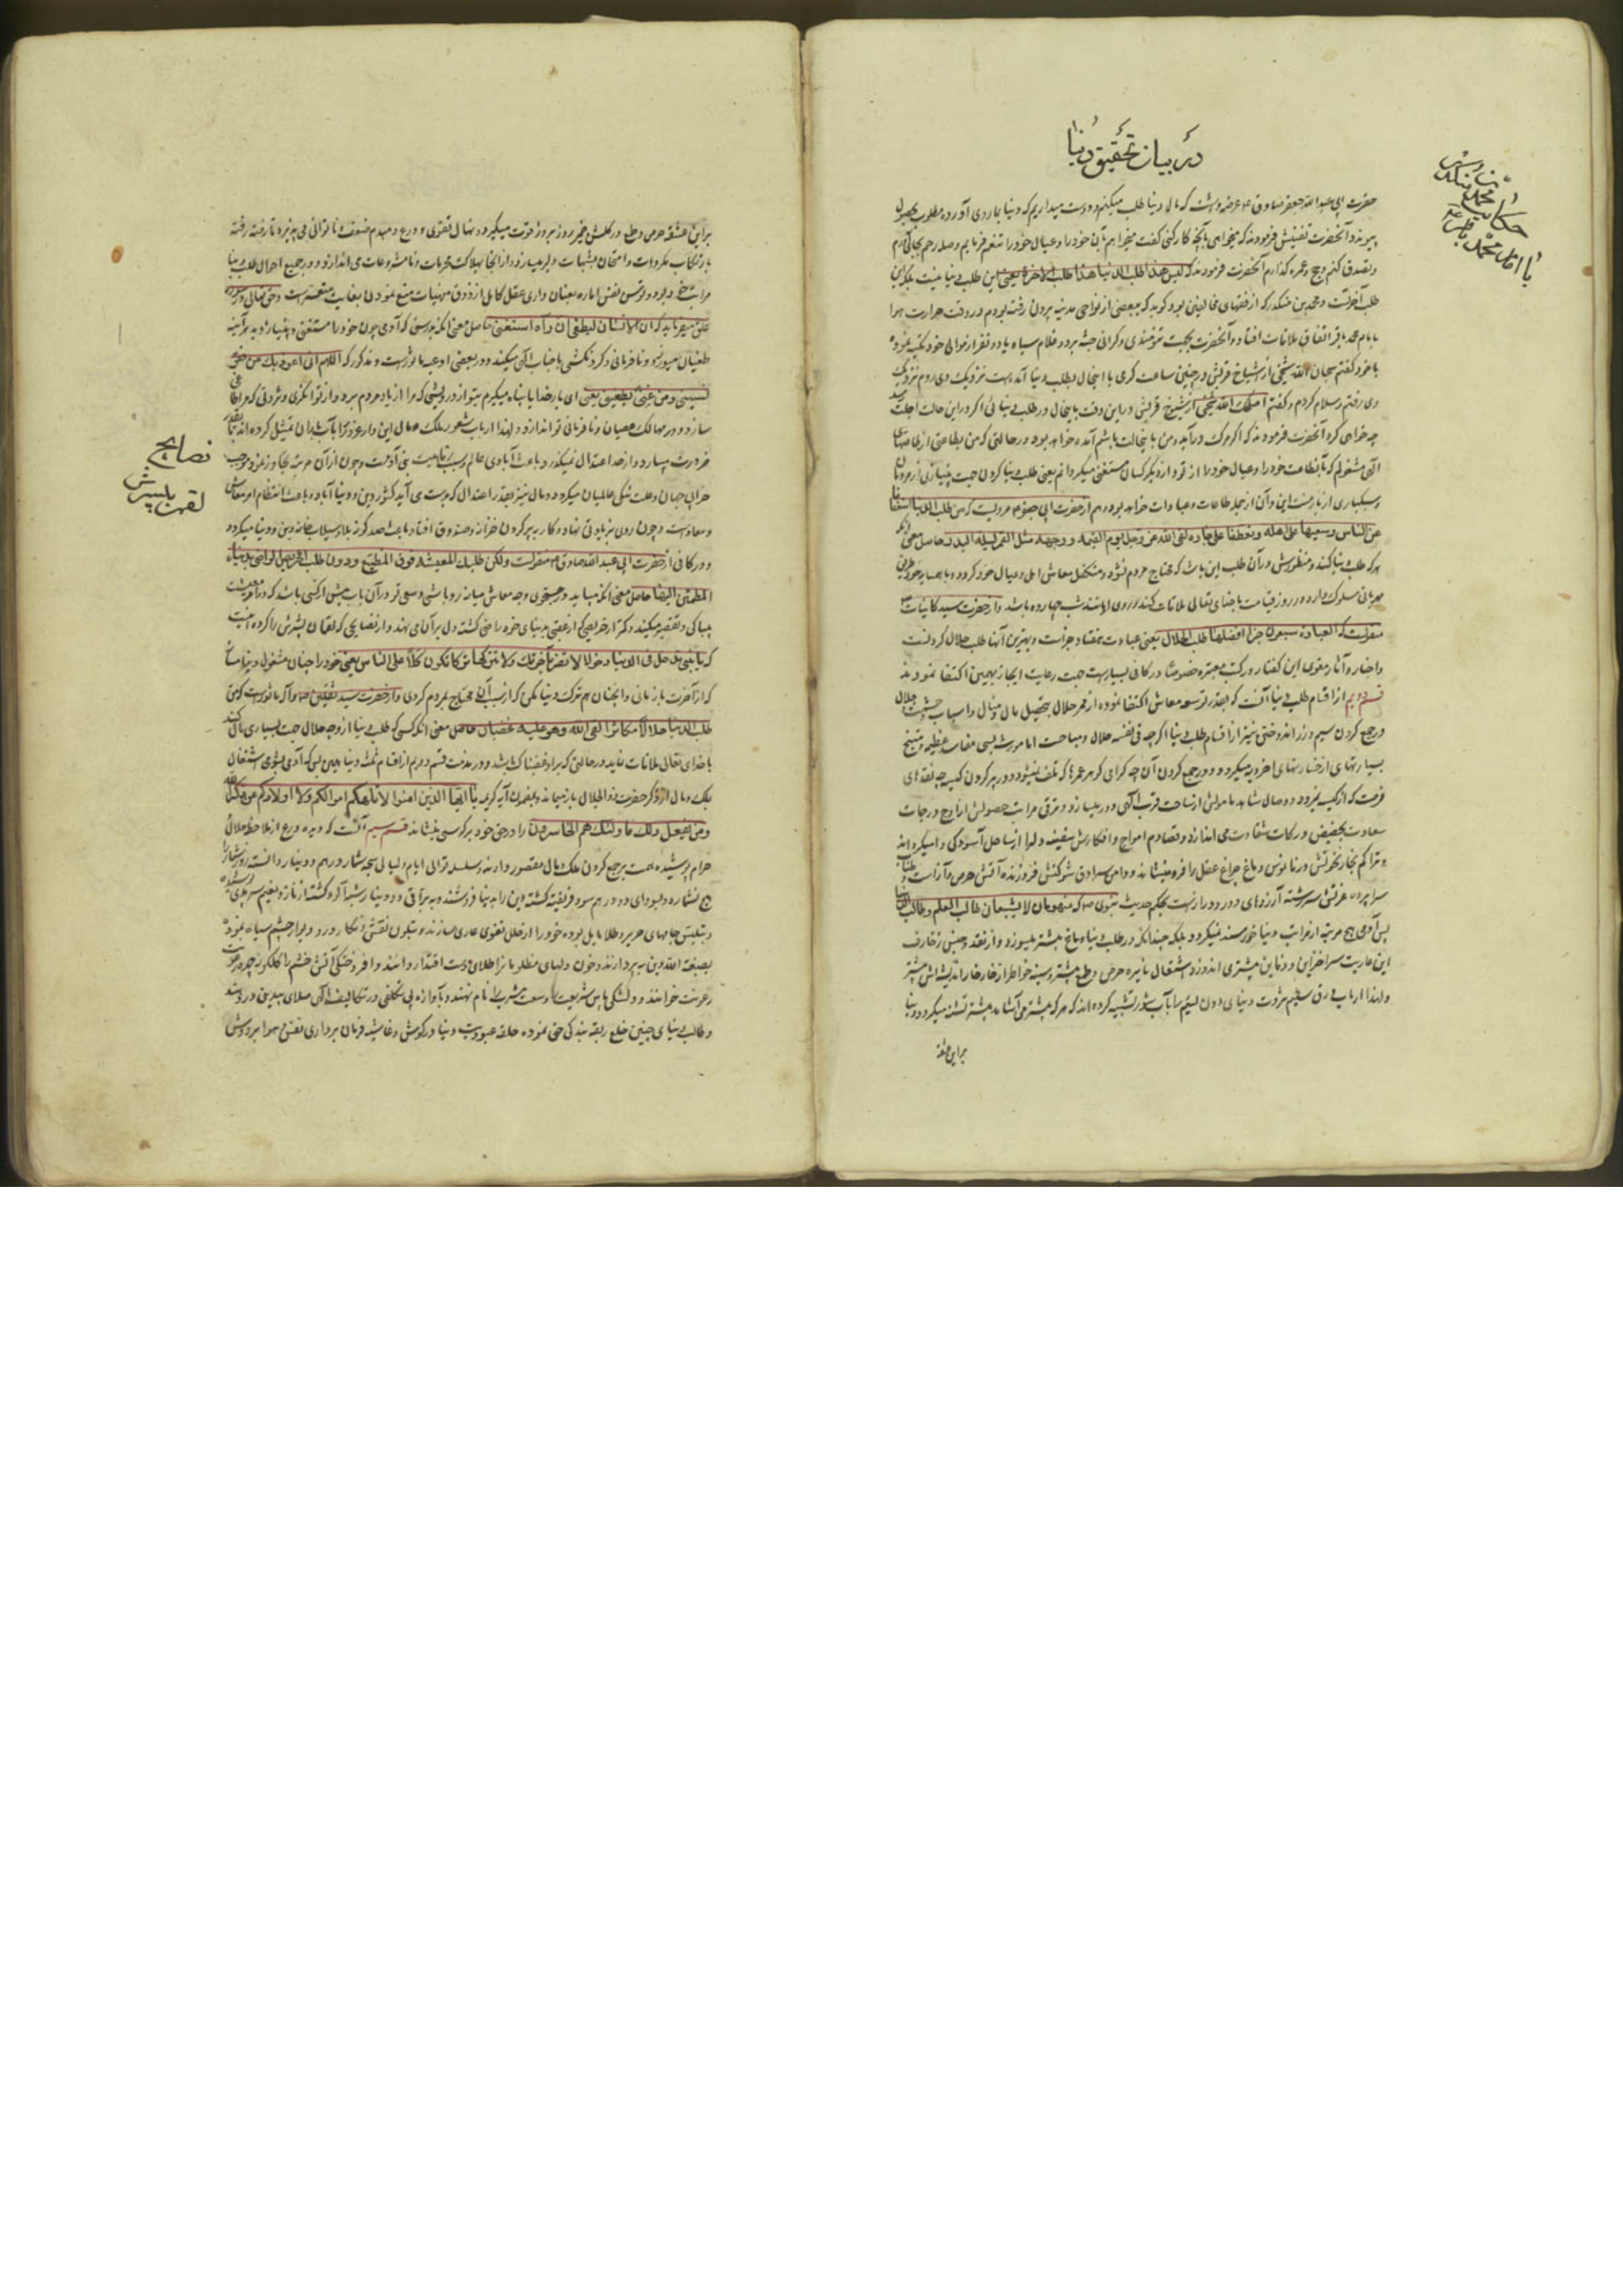 در بیان تحقیق دنیا
حکایت محمد بن منکدر
با امام محمد باقر ع
حضرت ابی عبد الله جعفر صادق ع عرضه داشت که مال دنیا طلب میکنم و دوست میداریم که دنیا بما روی آورده مطلوب بحصول
پیوندد آنحضرت تفتیش فرمودند که میخواهی بآنچه کار کنی گفت میخواهم بآن خود را و عیال خود را تنعم فرمایم و صله رحم بجای آرم
و تصدق کنم و حج و عمره گذارم آنحضرت فرمودند که لیس هذا طلب الدنیا هذا طلب الاخرة یعنی این طلب دنیا نیست بلکه این
طلب آخرتست و محمد بن منکدر که از فقهای مخالفین بود گوید که ببعضی از نواحی مدینه بیرون رفته بودم در وقت حرارت هوا
با امام محمد باقر اتفاق ملاقات افتاد و آنحضرت بجهت تنومندی و گرانی جثه بر دو غلام سیاه یا دو نفر از موالی خود تکیه نموده
با خود گفتم سبحان الله شیخی از اشیاخ قریش در چنین ساعت گرمی با اینحال بطلب دنیا آمده است نزدیک وی روم نزدیک
وی رفتم و سلام کردم و گفتم اصلحک الله شیخی از شیوخ قریش در این وقت باینحال در طلب دنیائی اگر در این حالت اجلت
چه خواهی کرد آنحضرت فرمودند که اگر مرگ درآید و من باینحالت باشم آمده خواهد بود در حالتی که من بطاعتی از طاعتهای
الهی مشغولم که بآن طاعت خود را و عیال خود را از تو و از دیگر کسان مستغنی میگردانم یعنی طلب دنیا کردن جهت بینیازی از مردمان
و سبکباری از بار منت این و آن از جمله طاعات و عبادات خواهد بود و هم از حضرت ابی جعفر ع مرویست که من طلب الدنیا استعفافا
عن الناس و سعیا علی اهله و تعطفا علی جاره لقی الله عز و جل یوم القیمة و وجهه مثل القمر لیلة البدر حاصل معنی آنکه
هر که طلب دنیا کند و منظورش در آن طلب این باشد که محتاج مردم نشود و متکفل معاش اهل و عیال خود گردد و با همسایه خود طریق
مهربانی مسلوک دارد در روز قیامت با خدای تعالی ملاقات کند و روی او مانند شب چهارده باشد و از حضرت سید کاینات ص
منقولست که العبادة سبعون جزا افضلها طلب الحلال یعنی عبادت هفتاد جزاست و بهترین آنها طلب حلال کردنست
و اخبار و آثار مقوی این گفتار در کتب معتبره خصوصا در کافی بسیارست جهت رعایت ایجاز بهمین اکتفا نمودند
قسم دویم از اقسام طلب دنیا آنست که بقدر توسعه معاش اکتفا ننموده از ممر حلال بتحصیل مال و منال و اسباب حشمت و جلال
و جمع کردن سیم و زر اندوختن نیز از اقسام طلب دنیا اگر چه فی نفسه حلال و مباحست اما مورث بسی مفاسد عظیمه و منتج
بسیار تبهای از خسارتهای اخرویه میگردد و در جمع کردن آن چه گرامی گوهر عمرها که تلف نمیشود و در پر کردن کیسه چه نقدهای
فرصت که از کیسه نمیرود و وصال شاهد مامولش از ساحت قرب الهی دور میسازد و ترقی مراتب حصولش از اوج درجات
سعادت بحضیض درکات شقاوت می اندازد و تصادم امواج افکارش سفینه دلرا از ساحل آسودگی وامیگرداند
و تراکم بخار نخوتش در فانوس دماغ چراغ عقل را فرو مینشاند و دامن سرادق شوکتش فروزنده آتش حرص و آزاست و طناب
سراپرده عزتش سر رشته آرزوهای دور و دراز نهست بحکم حدیث نبوی ص که منهومان لا یشبعان طالب العلم و طالب الدنیا
پس آدمی بهیچ مرتبه از مراتب دنیا خورسند نمیگردد و بلکه چندانکه در طلب دنیا دماغ بیشتر میسوزد و از نقد و جنس زخارف
این عاریت سرا خزاین و دفاین بیشتری اندوزد اشتغال نایره حرص و طمع بیشتر و سینه خواطر از خار خار اندیشه اش بیشتر
و لهذا ارباب ذوق سلیم ثروت دنیای دون لئیم را بآب شور تشبیه کرده اند که هر که بیشتر می آشامد بیشتر تشنه میگردد و دنیا
بر این عشقه
نصایح
لقمن بپسرش
بر این عشقه حرص و طمع در گلشن ضمیر روز بروز قوت میگیرد و نهال تقوی و ورع دمبدم ضعف و ناتوانی می پذیرد تا رفته رفته
بارتکاب مکروهات و امتحان بشبهات دلیر میسازد و از آنجا بهلاکت محرمات و نامشروعات می اندازد و در جمیع احوال طلب دنیا
علی میفرماید که ان الانسان لیطغی ان رآه استغنی حاصل معنی آنکه بدرستی که آدمی چون خود را مستغنی و بینیاز دید هر آینه
طغیان میورزد و نافرمانی و گردنکشی با جناب الهی میکند و در بعضی ادعیه ماثورست و مذکور که اللهم انی اعوذبک من فقر
نسینی و من غنی یطغینی یعنی ای بار خدایا پناه میگیرم بتو از درویشی که مرا از یاد مردم برد و از توانگری و ثروتی که مرا طاغی
سازد و در مهالک عصیان و نافرمانی تو اندازد و لهذا ارباب شعور ملک و مال این دار غرور را بآب باران تمثیل کرده اند که تا بقدر
ضرورت میبارد و از حد اعتدال نمیگذرد باعث آبادی عالم و سبب رفاهیت بنی آدمست و چون از آن مرتبه تجاوز نمود موجب
خرابی جهان و علت تنگی عالمیان میگردد و مال نیز بقدر اعتدال که بدست می آید کشور دین و دنیا آباد و باعث انتظام امر معاش
و معادست و چون روی بزیادتی نهاد و کار به پر کردن خزانه و صندوق افتاد باعث صد گونه بلا و سیلاب خانه دین و دنیا میگردد
و در کافی از حضرت ابی عبد الله صادق ع منقولست ولکن طلبک المعیشة فوق المضیع و دون طلب الحریص الراضی بدنیاه
المطمئن الیها حاصل معنی آنکه میباید در جستجوی وجه معاش میانه رو باشی و سعی تو در آن باب بیش از کسی باشد که در امر معیشت
بیباکی و تقصیر میکند و کمتر از حریصی که از عقبی بدنیای خود راضی گشته و دل بر آن می نهد و از نصایحی که لقمان پسرش را کرده اینست
که یا بنی لا تدخل فی الدنیا دخولا یضر بآخرتک و لا تترکها ترکا تکون کلا علی الناس یعنی خود را چنان مشغول دنیا مساز
که از آخرت باز مانی و آنچنان هم ترک دنیا مکن که از بی سببی محتاج بمردم گردی و از حضرت سید ثقلین ص و آله ماثورست که من
طلب الدنیا حلالا مکاثرا لقی الله و هو علیه غضبان حاصل معنی آنکه کسی که طلب دنیا از وجه حلال جهت بسیاری مال کند
با خدای تعالی ملاقات نماید در حالتی که بر او غضبناک باشد و در مذمت قسم دویم از اقسام ثلثه دنیا همین بس که آدمی بسوی اشتغال
بملک و مال از ذکر حضرت ذو الجلال باز میماند و بمضمون آیه کریمه یا ایها الذین امنوا لا تلهکم اموالکم و لا اولادکم عن ذکر الله
و من یفعل ذلک فاولئک هم الخاسرون را در حق خود بر کرسی مینشاند قسم سیم آنست که دیده ورع از ملاحظه حلال
حرام پوشیده همت بر جمع کردن ملک و مال مقصور دارند و سلسله توالی ایام و لیالی سبحه شمار درهم و دینار دانسته روز شمار را
بصبغة الله دین به پردازند و خون دلهای مظلومانرا طلای دست اقتدار دانند و افروختگی آتش خشم را گلگونه چهره مروت
رعونت خوانند و دلتنگی پاس شریعت را وسعت مشرب نام نهند و بآوازه بی تکلفی در تکالیف الهی صلای بیدینی دردهند
و طالب دنیای چنین خلع ربقه بندگی حق نموده حلقه عبودیت دنیا در گوش و غاشیه فرمان برداری نفس و هوا بر دوش